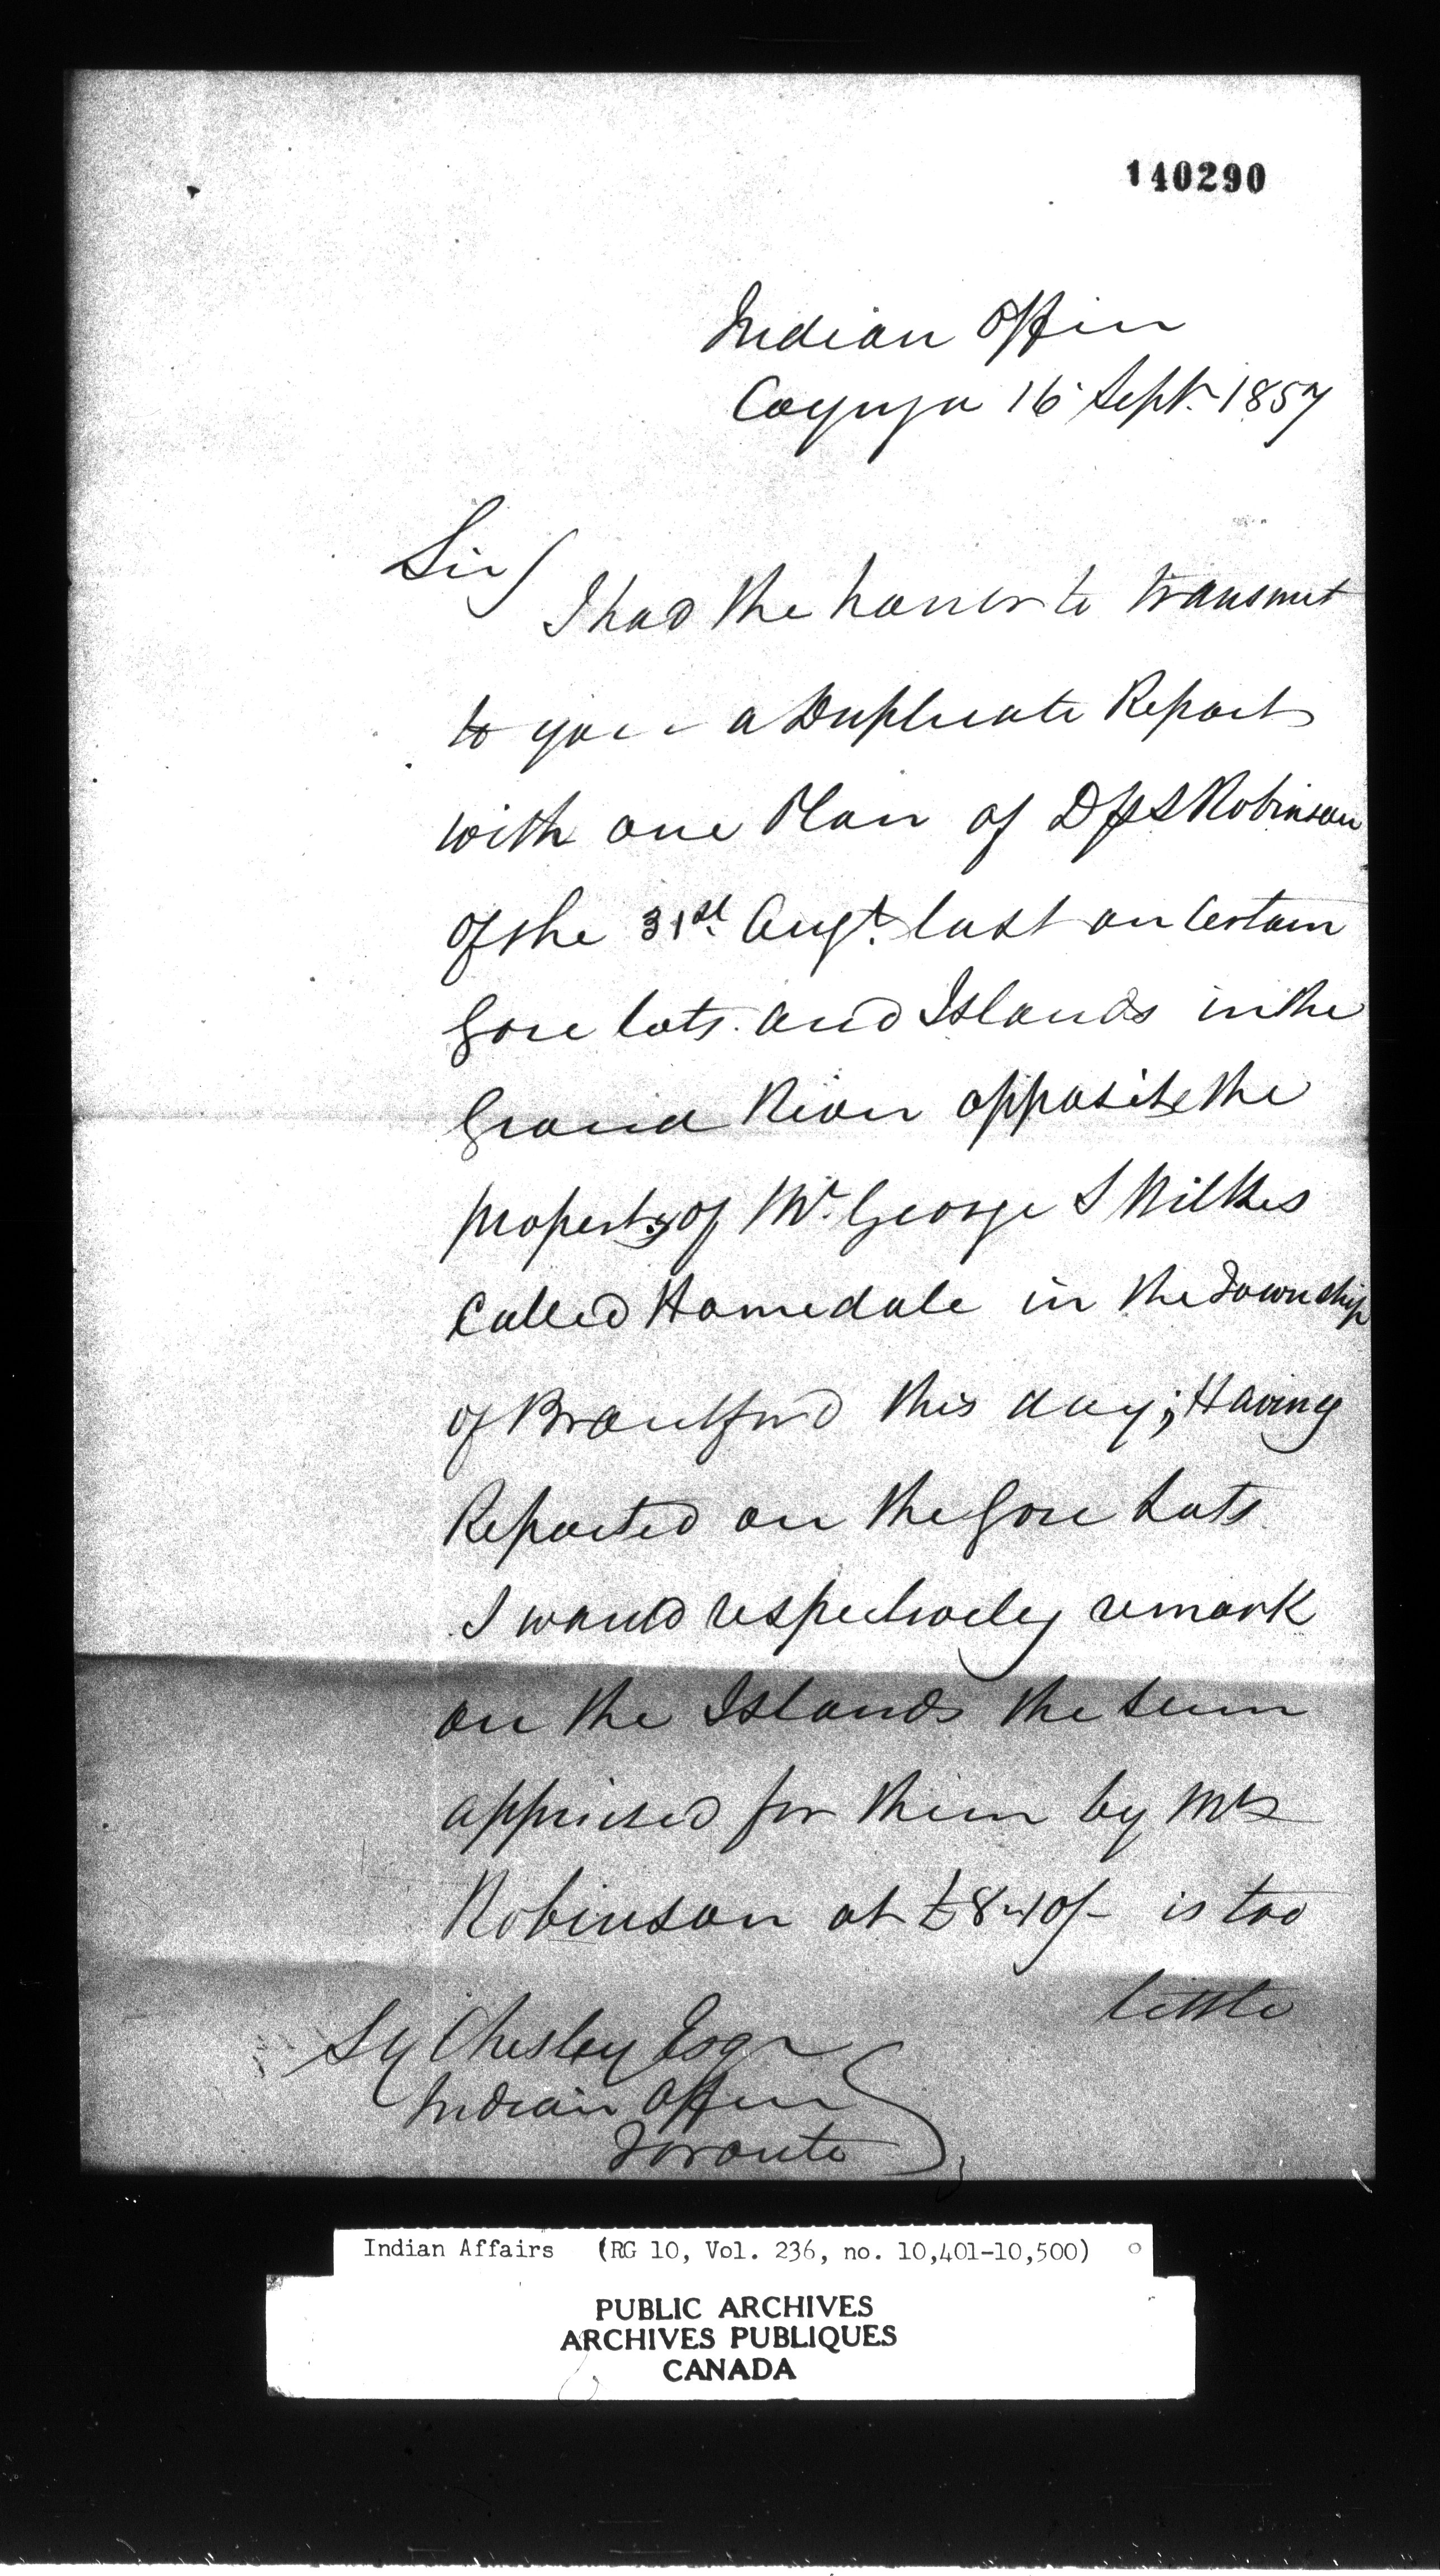 140290
Indian Office
Cayuga 16 Sept. 1857
Sir
I had the honor to transmit
to you - a Duplicate Report
with one Plan of Robinson
of the 31st. Augt. last on Certain
Gore lots. and Islands in the
Grand River opposite the
property of Mr. George S Wilkes
Called Homedale in the Township
of Brantford this day; Having
Reported on the Gore Lots.
I would respectively remark
on the Islands the sum
apprised for them by Mr
Robinson at is too
little
Chesley Esqr
Indian Office
Toronto
Indian Affairs (RG 10, Vol. 236, no. 10,401-10,500)
PUBLIC ARCHIVES
ARCHIVES PUBLIQUES
CANADA